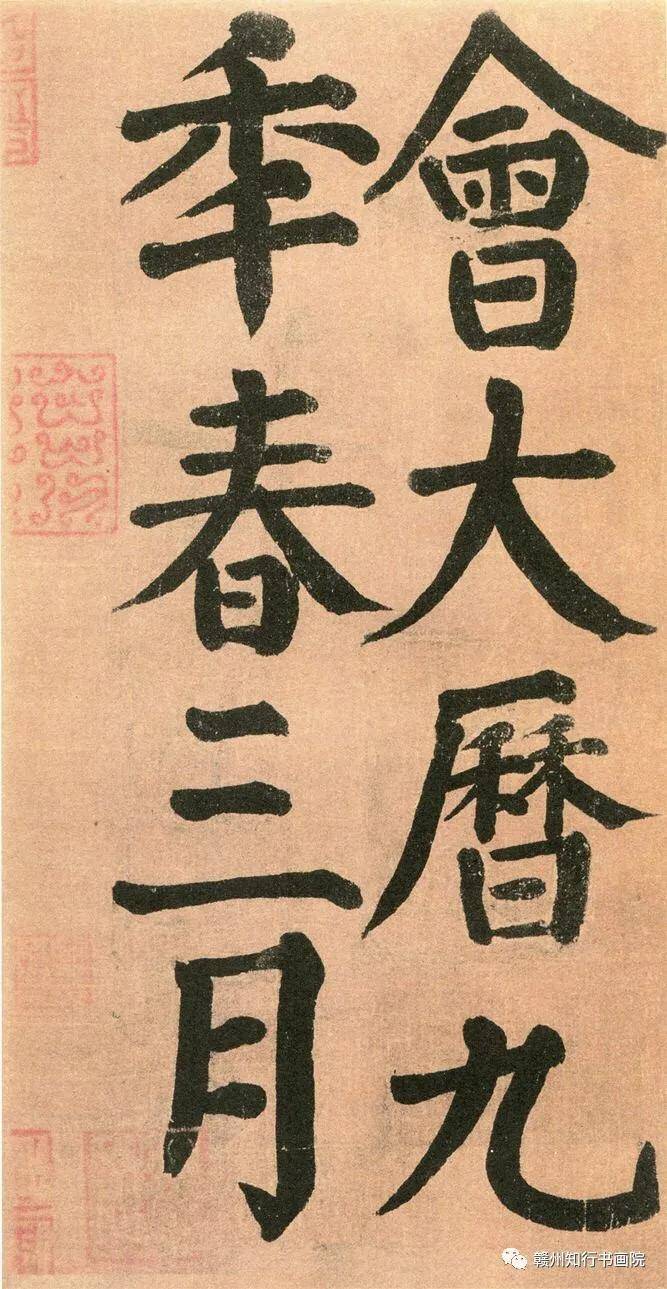 會大曆九
年春三月
赣州知行书画院